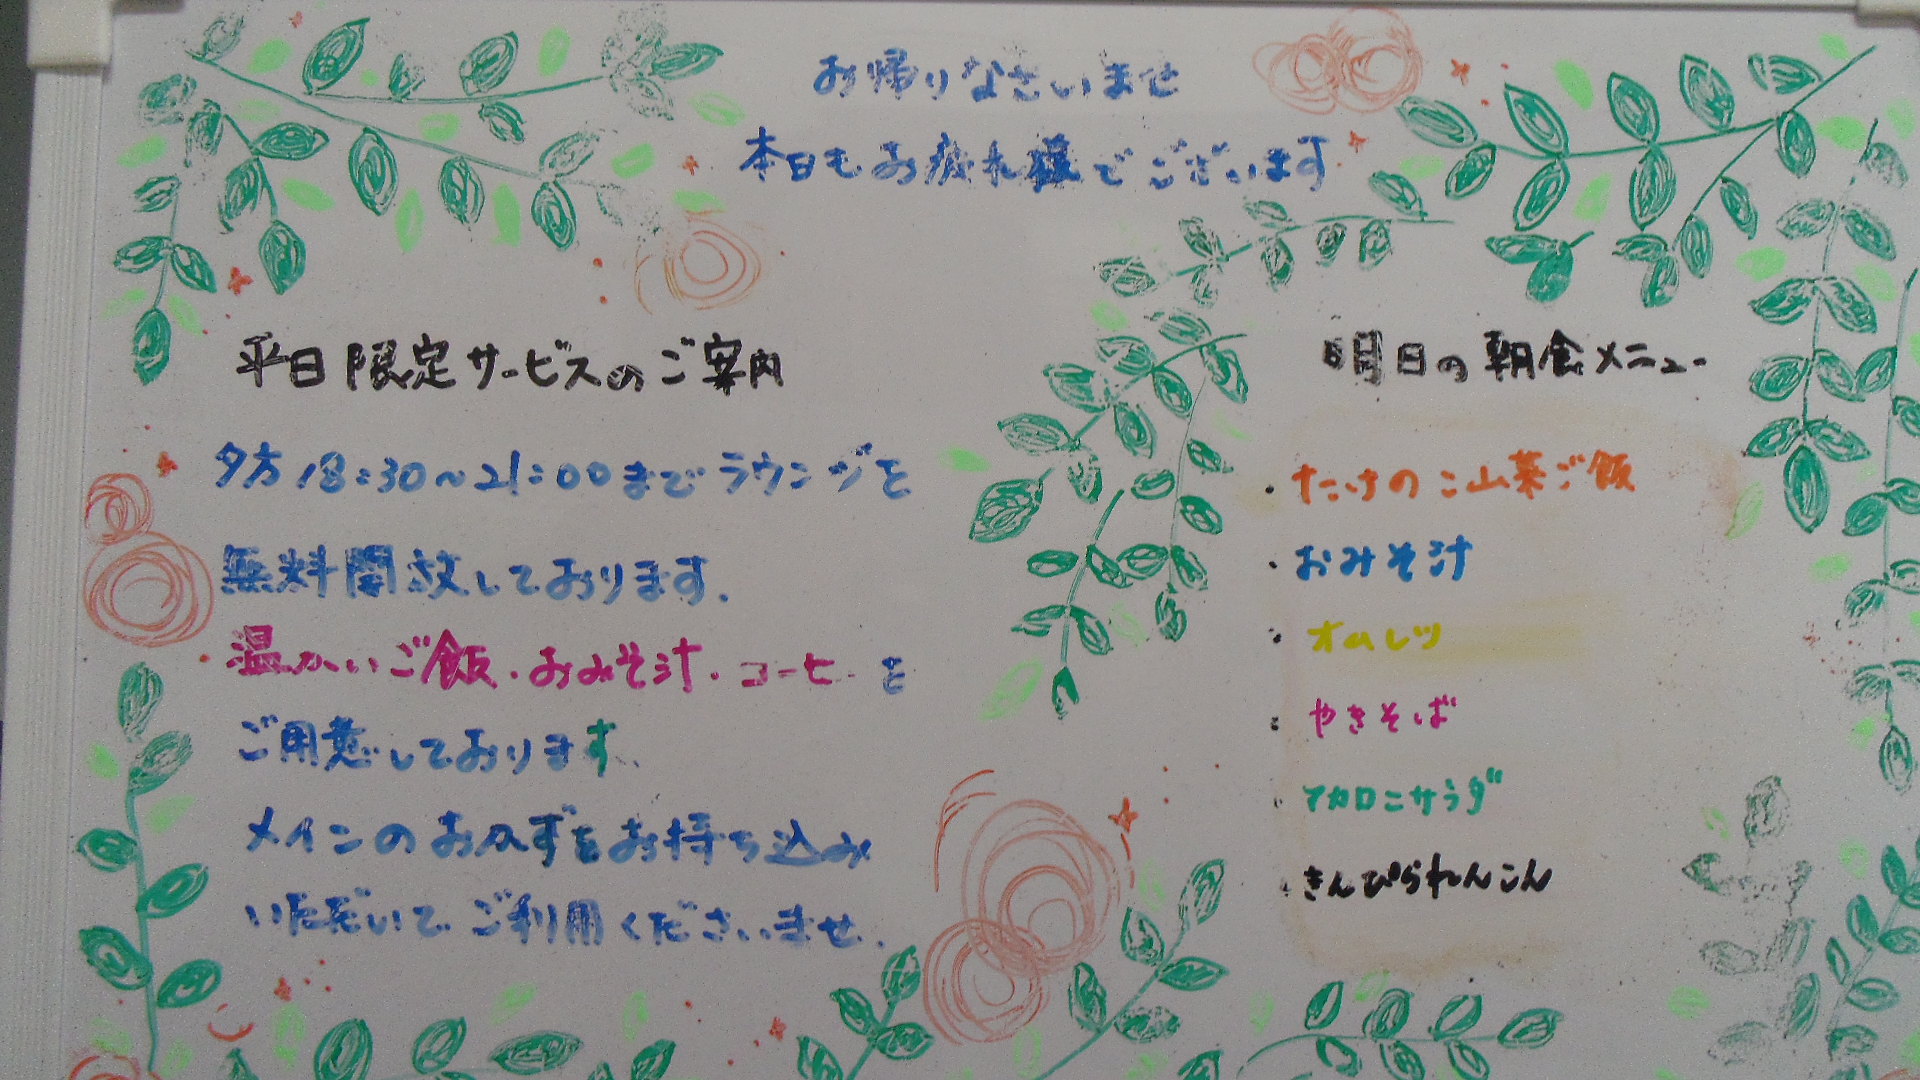 お帰りなさいませ
本日もお疲れ様でございます
平日限定サービスのご案内
夕方18:30~21:00までラウンジを
無料開放しております.
温かいご飯・おみそ汁・コーヒーを
ご用意しております.
メインのおかずをお持ち込み
いただいてご利用くださいませ.
明日の朝食メニュー
・たけのこ山菜ご飯
・おみそ汁
・オムレツ
・やきそば
・マカロニサラダ
・きんぴられんこん